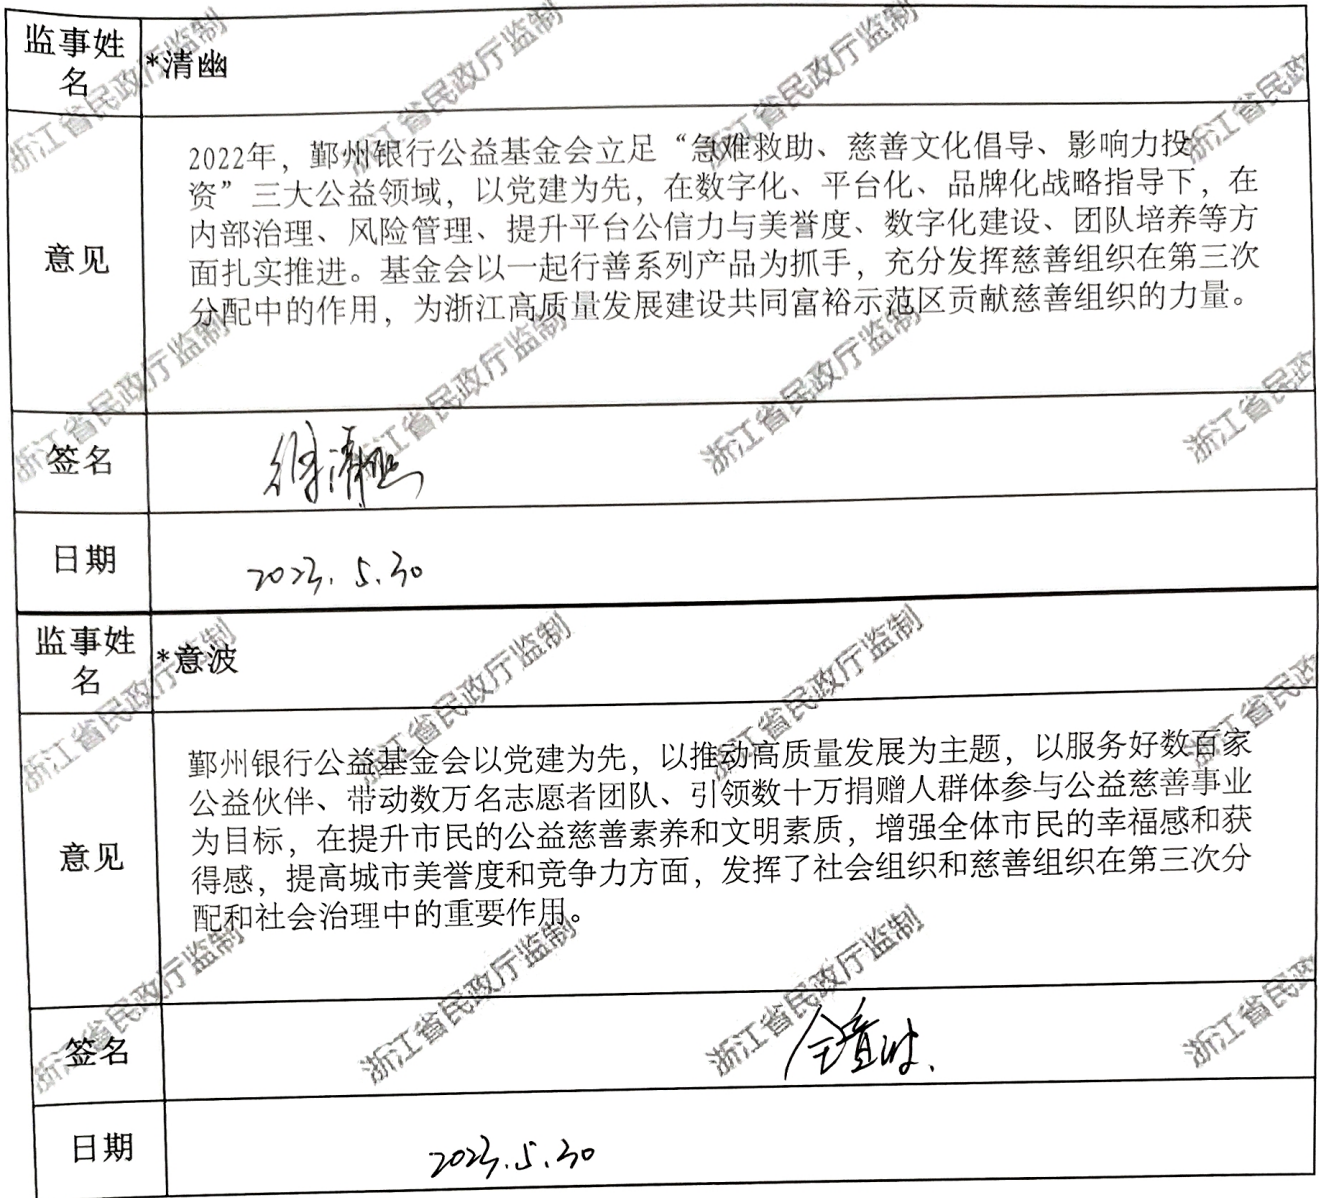 监事姓
名
*清幽
意见
2022年，鄞州银行公益基金会立足“急难救助、慈善文化倡导、影响力投
资”三大公益领域，以党建为先，在数字化、平台化、品牌化战略指导下，在
内部治理、风险管理、提升平台公信力与美誉度、数字化建设、团队培养等方
面扎实推进。基金会以一起行善系列产品为抓手，充分发挥慈善组织在第三次
分配中的作用，为浙江高质量发展建设共同富裕示范区贡献慈善组织的力量。
签名
徐清幽
日期
2023.5.30
监事姓
名
*意波
意见
鄞州银行公益基金会以党建为先，以推动高质量发展为主题，以服务好数百家
公益伙伴、带动数万名志愿者团队、引领数十万捐赠人群体参与公益慈善事业
为目标，在提升市民的公益慈善素养和文明素质，增强全体市民的幸福感和获
得感，提高城市美誉度和竞争力方面，发挥了社会组织和慈善组织在第三次分
配和社会治理中的重要作用。
签名
全意波
日期
2023.5.30
浙江省民政厅监制